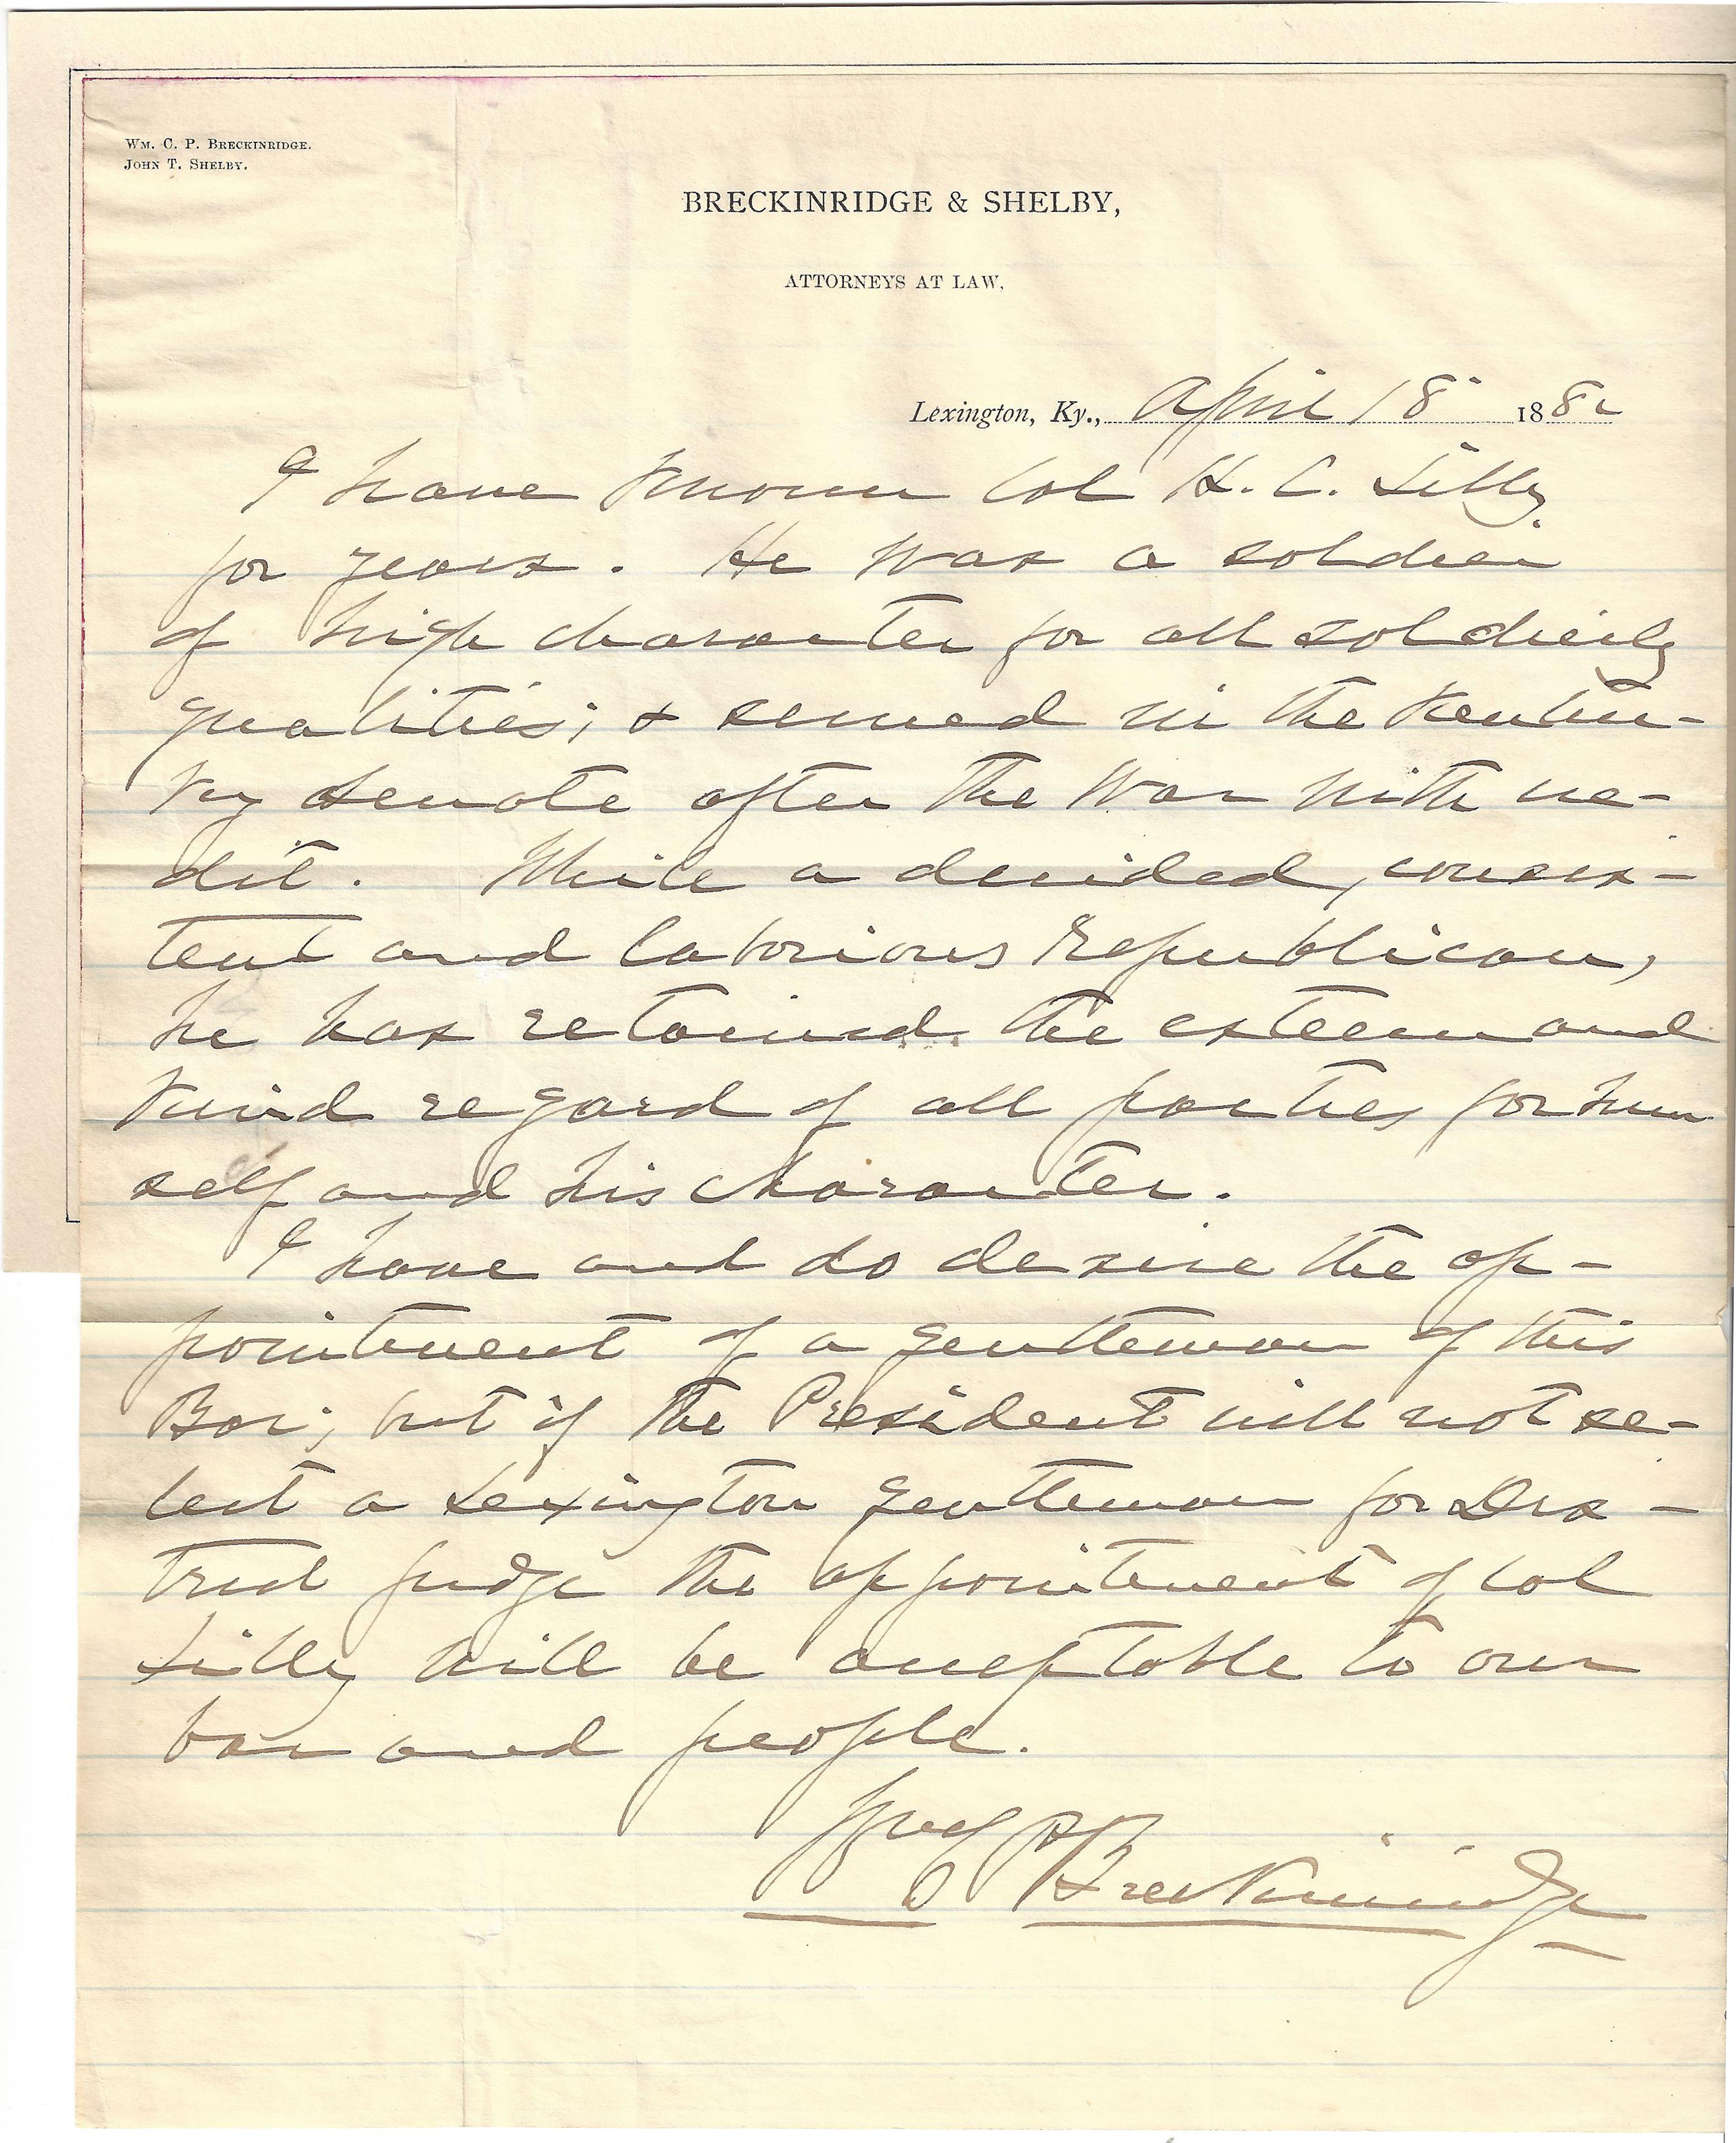 Wm. C. P. Breckinridge.
John T. Shelby.
BRECKINRIDGE & SHELBY,
ATTORNEYS AT LAW,
Lexington, Ky., April 18 1882
I have known Col H. C. Lilly
for years. He was a soldier
of high character for all soldierly
qualities; & served in the Kentuc-
ky Senate after the War with cre-
dit. While a decided, consis-
tent and laborious Republican,
he has retained the esteem and
kind regard of all parties for him
self and his character.
I have and do desire the ap-
pointment of a gentleman of this
Bar; but if the President will not se-
lect a Lexington gentleman for Dis-
trict Judge the appointment of Col
Lilly will be acceptable to our
bar and people.
Wm C P Breckinridge